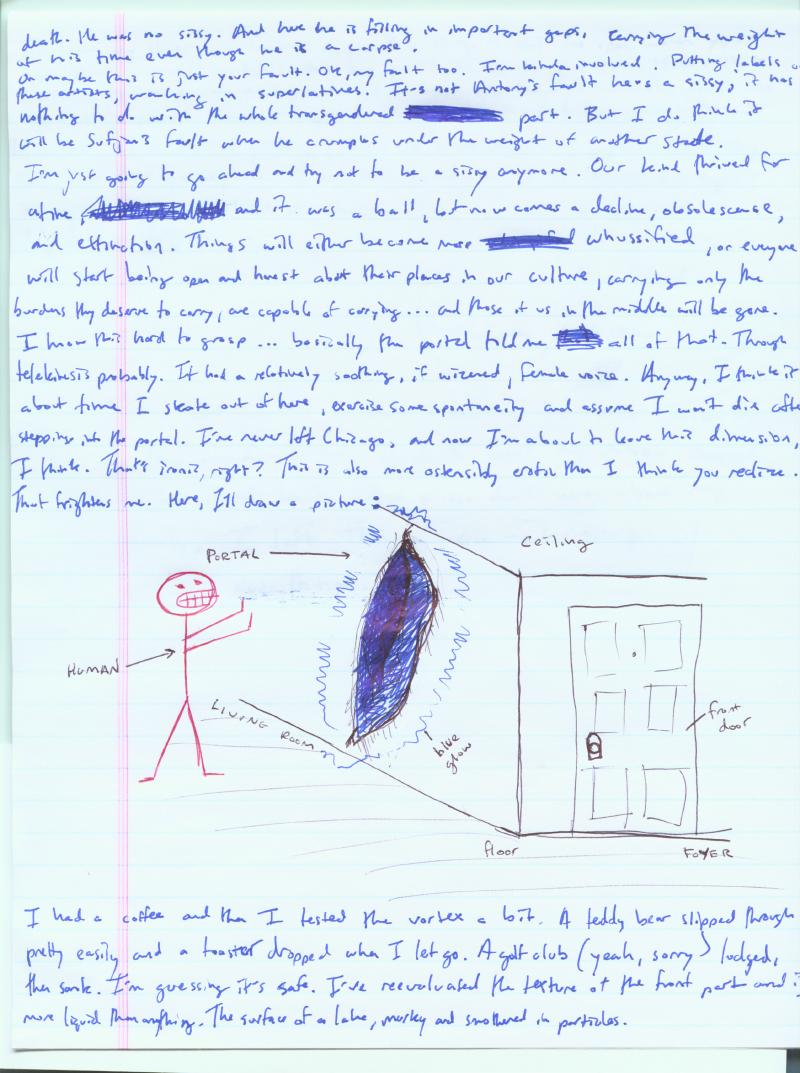 death. He was no sissy. And here he is filling in important gaps, carrying the weight
of his time even though he is a corpse.
Or maybe this is just your fault. Ok, my fault too. I'm kinda involved. Putting labels o
these artists, wanking in superlatives. It's not Antony's fault he's a sissy, it has
nothing to do with the whole transgendered part. But I do think it
will be Sufjan's fault when he crumples under the weight of another state.
I'm just going to go ahead and try not to be a sissy anymore. Our kind thrived for
a time, and it was a ball, but now comes a decline, obsolescense,
and extinction. Things will either become more whussified, or everyone
will start being open and honest about their places in our culture, carrying only the
burdens they deserve to carry, are capable of carrying... and those of us in the middle will be gone.
I know this hard to grasp... basically the portal told me all of that. Through
telekinesis probably. It had a relatively soothing, if wizened, female voice. Anyway, I think it
about time I skate out of here, exercise some spontaneity and assume I won't die after
stepping into the portal. I've never left Chicago, and now I'm about to leave this dimension,
I think. That's ironic, right? This is also more ostensibly erotic than I think you realize.
That frightens me. Here, I'll draw a picture:
Ceiling
PORTAL
HUMAN
LIVING ROOM
blue glow
front door
floor
FOYER
I had a coffee and then I tested the vortex a bit. A teddy bear slipped through
pretty easily and a toaster dropped when I let go. A golf club (yeah, sorry) lodged,
then sank. I'm guessing it's safe. I've reevaluated the texture of the front part and i
more liquid than anything. The surface of a lake, murky and smothered in particles.